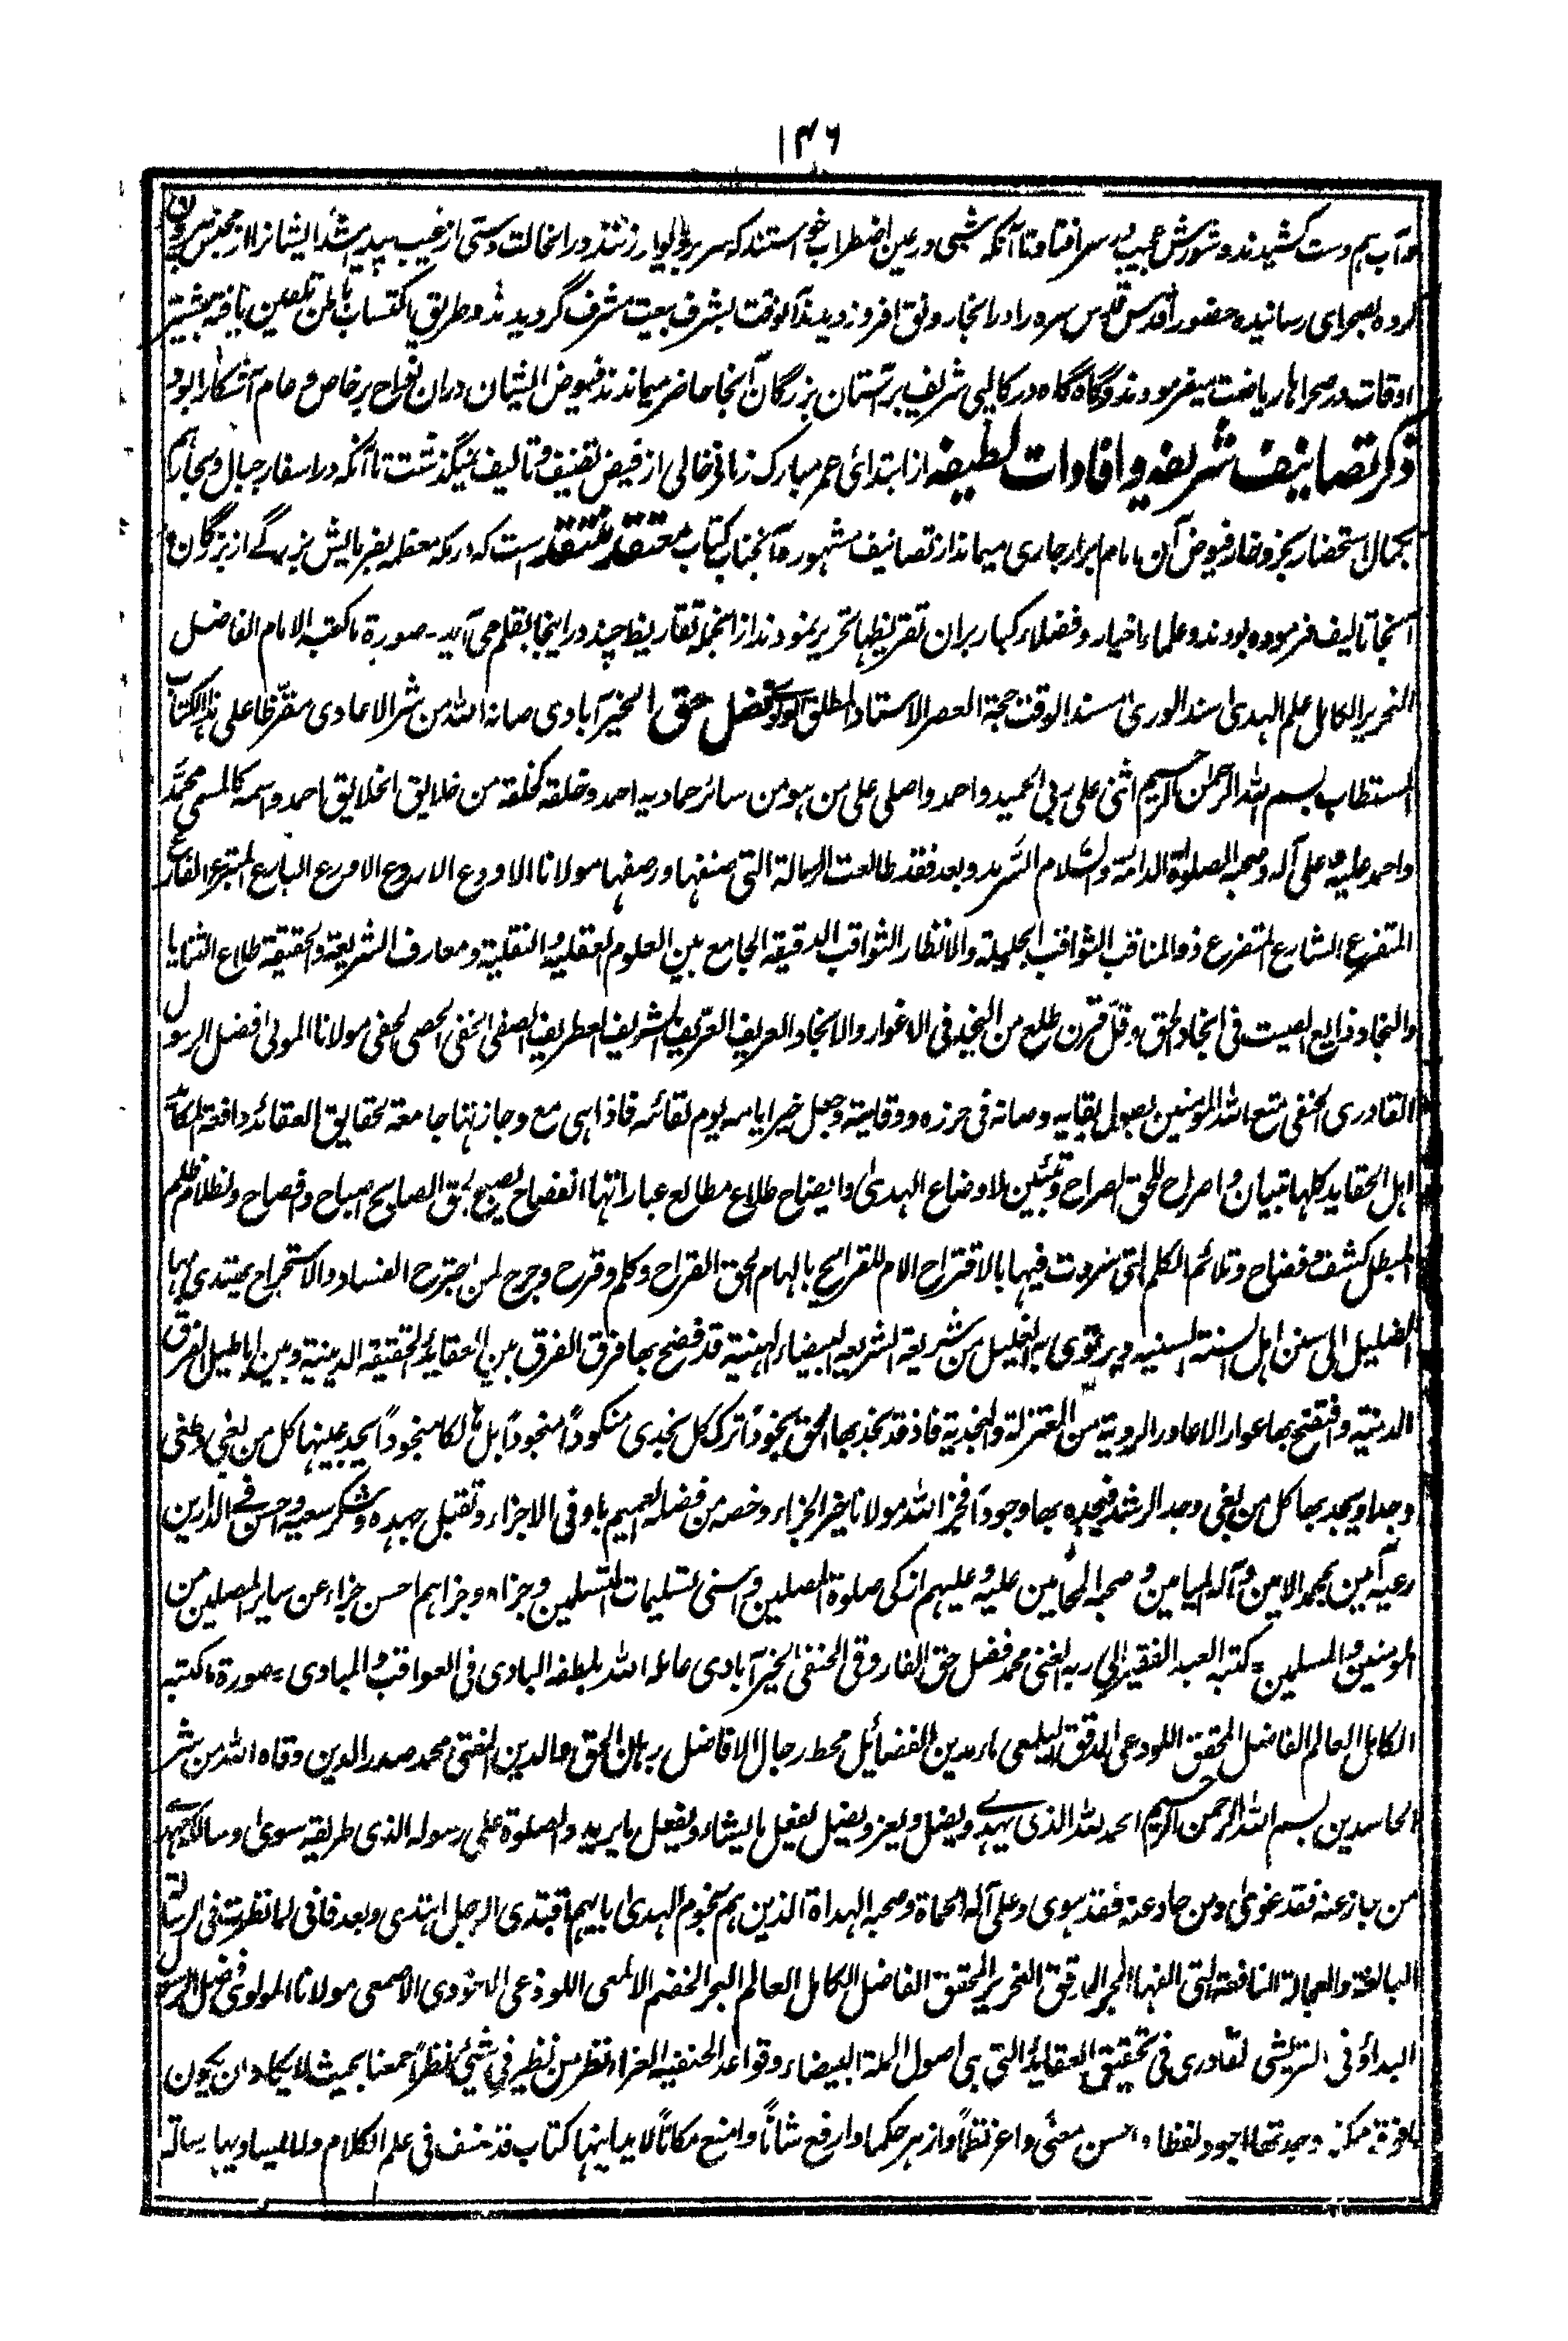 ۱۴۶
و آب هم دست کشیدند و شورش عجیب در سر افتاد تا آنکه شبی در عین اضطراب خواستند که سر بر دیوار زنند در انحالت دستی از غیب پدید شد ایشانرا از محبس بیرون
کرده بصحرای رسانیده حضور اقدس قدس سره را در انجا رونق افروز دیدند آنوقت بشرف بیعت مشرف گردیدند و طریق اکتساب باطن تلقین یافته بیشتر
اوقات در صحراها ریاضت میفرمودند و گاه گاه در کالپی شریف بر آستان بزرگان آنجا حاضر میماندند فیوض ایشان دران نواح بر خاص و عام آشکارا بود
ذکر تصانیف شریفه و افادات لطیفه از ابتدای عمر مبارک زمانی خالی از فیض تصنیف و تالیف نیگذشت تا آنکه در اسفار جبال و بحار هم
بکمال استحضار بحر ذخار فیوض آن امام ابرار جاری میماند از تصانیف مشهوره آنجناب کتاب معتقد منتقد است که در مکه معظمه بفرمایش بزرگے از بزرگان
آنجا تالیف فرموده بودند و علماء اخیار و فضلاء کبار بران تقریظها تحریر نمودند از انجمله تقاریظ چند در اینجا بقلم می آید - صورة ما کتبه الامام الفاضل
النحریر الکامل علم الهدی سند الوری مسند الوقت حجة العصر الاستاد المطلق المولوی فضل حق الخیرآبادی صانه الله من شر الاعادی مقرظا علی هذا الکتاب
المستطاب بسم الله الرحمن الرحیم اثنی علی ربی الحمید و احمد و اصلی علی من هو من سائر حامدیه احمد و خلقه کخلقه من خلایق الخلایق احمد و اسمه کالمسمی محمد
و احمد علیه و علی آله و صحبه الصلوة الدائمة و السلام السرمد و بعد فقد طالعت الرسالة التی صنفها و رصفها مولانا الاودع الاروع الاورع البارع المتبرع الفارع
المتفرع الشارع المتضرع ذو المناقب الثواقب الجلیلة و الانظار الثواقب الدقیقة الجامع بین العلوم العقلیة و النقلیة و معارف الشریعة و الحقیقة طلاع الثنایا
و النجاد ذایع الصیت فی انجاد الحق و قل قرن طلع من النجد فی الاغوار و الانجاد العریف العریف الشریف الغطریف الصفی الحفی الحصی الحفی مولانا المولی افضل الرسول
القادری الحنفی متع الله المومنین بطول بقایه و صانه فی حرزه و وقایته و جعل خیر ایامه یوم لقائه فاذا هی مع وجازتها جامعة لحقایق العقائد دافعة لمکائد
اهل الحقاید کلها تبیان و اصراح للحق الصراح و تبیین لاوضاع الهدی و ایضاح طلاع مطالع عباراتها انفضاح یصبح بحق الصابح صباح و فصاح و لظلام ظلم
المبطل کشف و فضاح و تلائم الکلم التی سردت فیها بالاقتراح الام للقرایح بالهام الحق القراح و کلم و قرح و جرح لمن اجترح الفساد و الاستجراح یهتدی بها
الضلیل الی سنن اهل السنة السنیه و یرتوی به الغلیل من شریعة الشریعه البیضاء الهنیة قد فضح بها فرق الفرق بین العقاید الحقیقه الدینیة و بین اباطیل الفرق
الدنیة و افتضح بها عوار الاعادر الردیة من المعتزلة و النجدیة فاذ قد نجد بها الحق نجودا ترک کل نجدی منکودا منجودا بل هالکا منجودا یجد علیها کل من بغی و طغی
وجدا و یجد بها کل من یبغی وجد الرشد فیجده بها وجودا فجز الله مولانا خیر الجزاء و خصه من فضله العمیم باوفی الاجزاء و تقبل جهده و شکر سعیه و احسن فی الدارین
رعیه آمین بمحمد الامین و آله المیامین و صحبه المحامین علیه و علیهم ازکی صلوة المصلین و اسنی تسلیمات المسلمین و جزاه و جزاهم احسن جزاء عن سایر المصلین من
المومنین و المسلمین - کتبه العبد الفقیر الی ربه الغنی محمد فضل حق الفاروقی الحنفی الخیرآبادی عامله الله بلطفه البادی فی العواقب و المبادی - صورة ما کتبه
الکامل العالم الفاضل المحقق اللوذعی المدقق الیلمعی مارمدین الفضائل محط رحال الافاضل برهان الحق و الدین المفتی محمد صدر الدین وقاه الله من شر
الحاسدین بسم الله الرحمن الرحیم الحمد لله الذی یهدی و یضل و یعز و یذل یفعل ما یشاء و یفعل ما یرید و الصلوة علی رسوله الذی طریقه سوی و سالکه مهدی
من جاز عنه فقد غوی و من حاد عنه فقد هوی و علی آله الحماة و صحبه الهداة الذین هم نجوم الهدی بایهم اقتدی الرجل اهتدی و بعد فانی لما نظرت فی الرسالة
البالغة و العجالة النافعة التی الفها الحبر المدقق النحریر المحقق الفاضل الکامل العالم البحر الخضم الالمعی اللوذعی الاحوذی الاصمعی مولانا المولوی فضل الرسول
البداؤنی القریشی القادری فی تحقیق العقاید التی هی اصول الملة البیضاء و قواعد الحنفیه الغراء نظر من نظیر فی شیء نظرا ممعنا بحیث لا یکاد ان یکون
ما فوقه ممکنه وجدتها اجود لفظا و احسن معنی و اعز نظما و ازهر حکما و ارفع شانا و امنع مکانا لا یدانیها کتاب قد صنف فی علم الکلام و لا یساویها رسالة